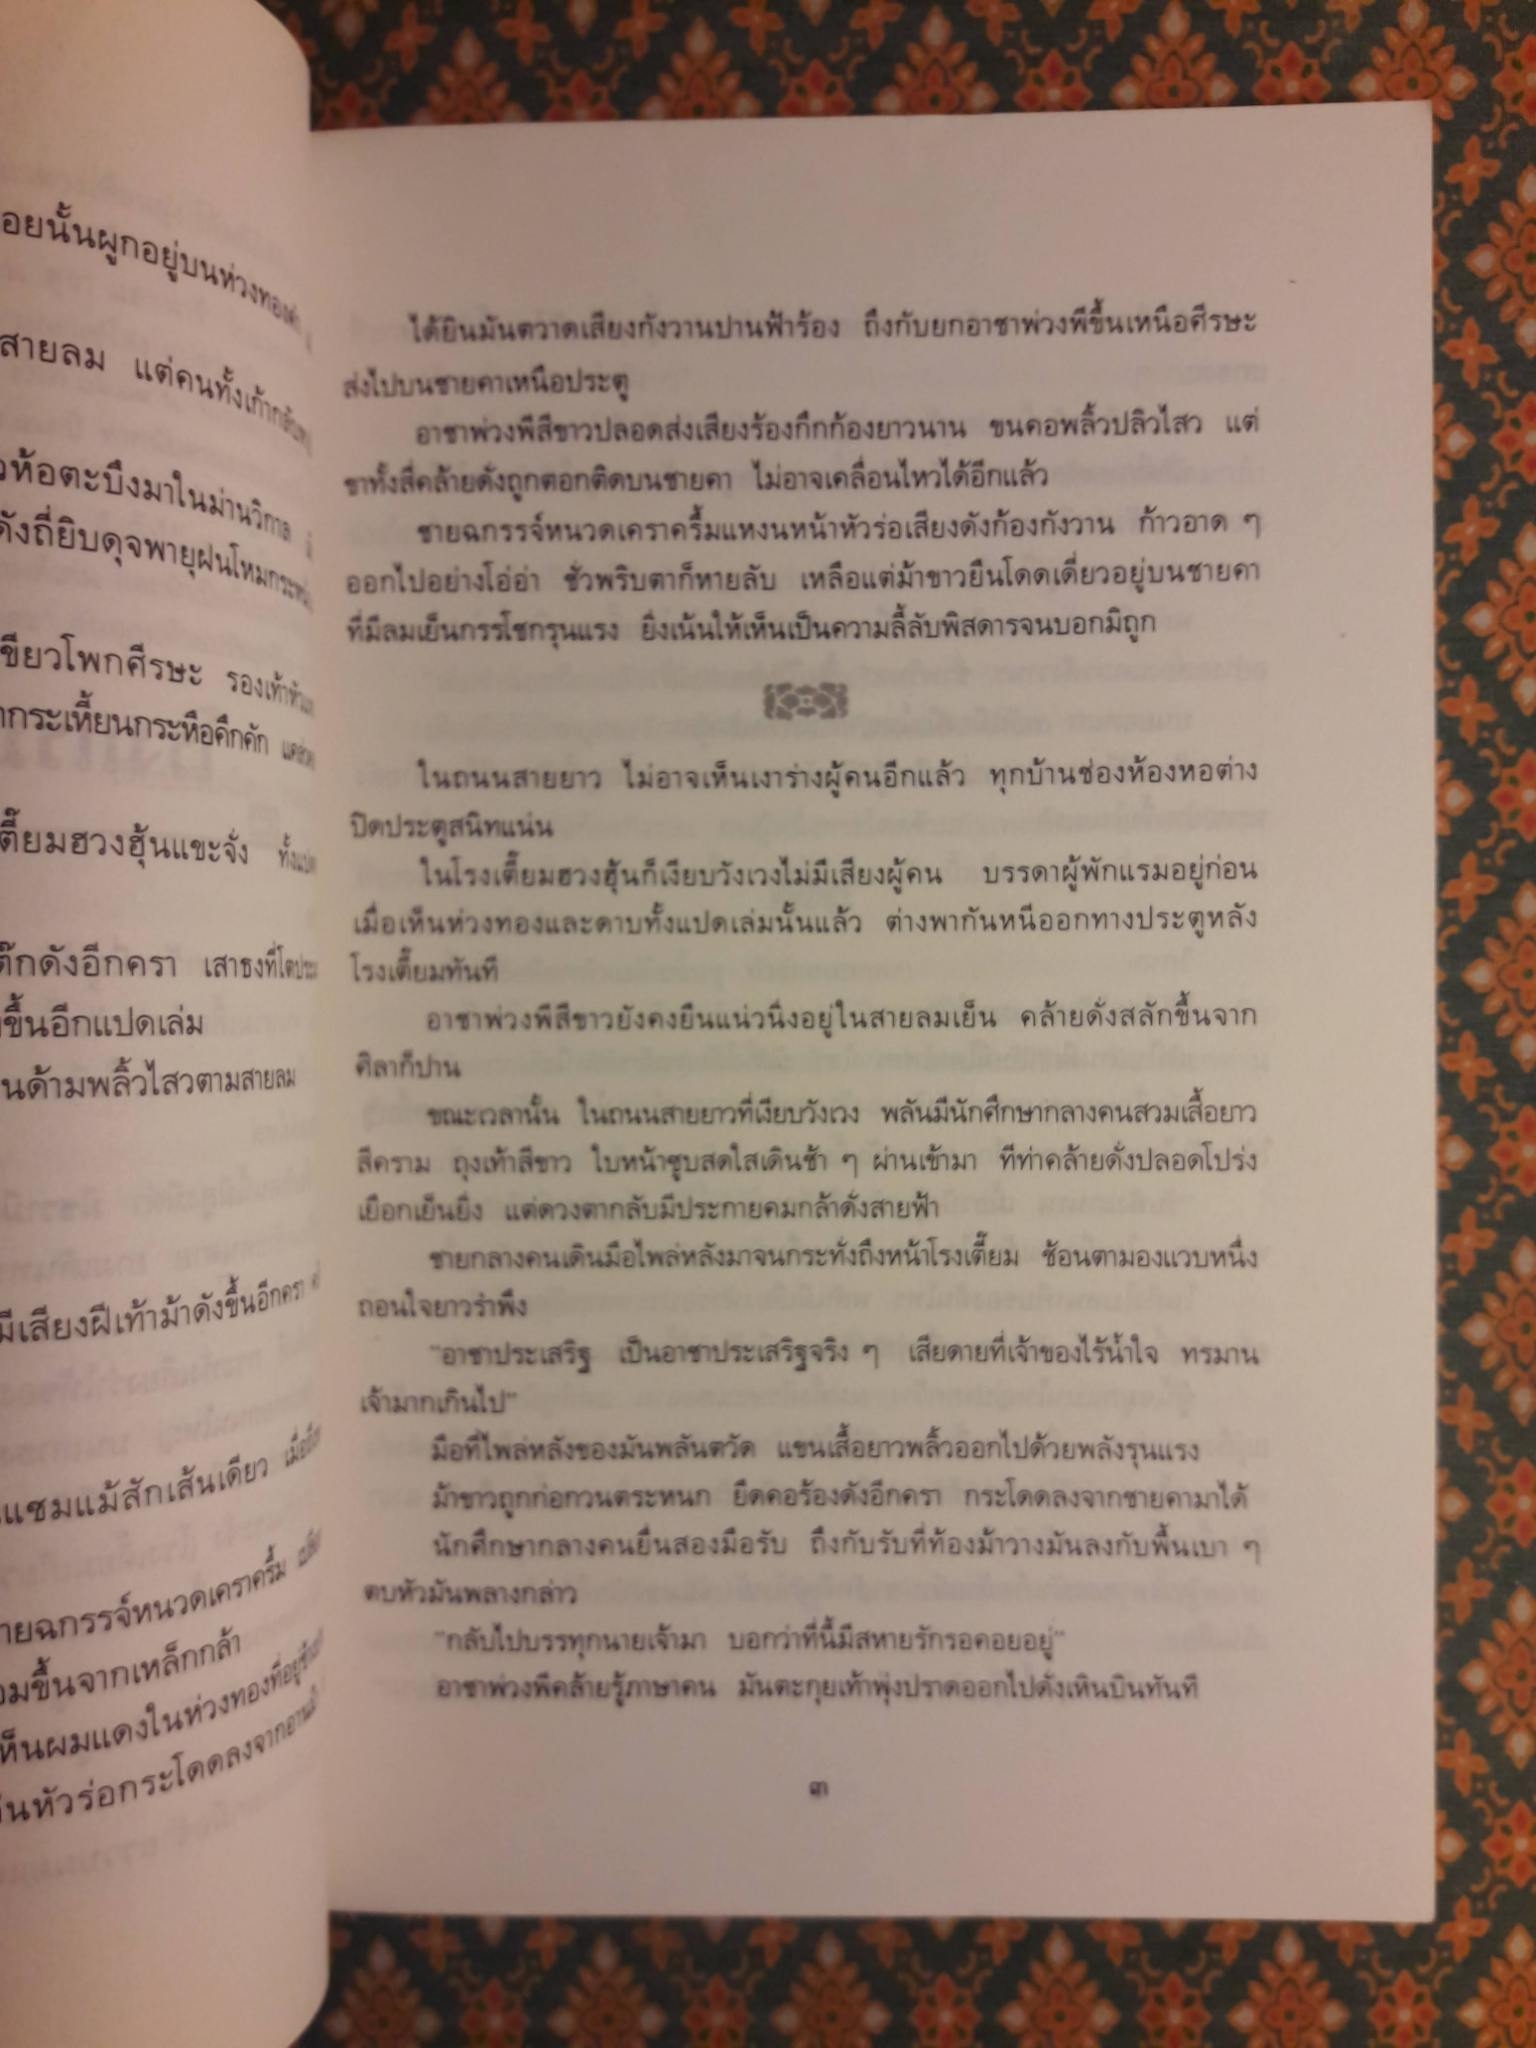 อยนั้นผูกอยู่บนห่วงทองคำ
สายลม แต่คนทั้งเก้ากลับ
ห้อตะบึงมาในม่านวิกาล
ดังถี่ยิบดุจพายุฝนโหมกระหน่ำ
เขียวโพกศีรษะ รองเท้า
กระเหี้ยนกระหือคึกคัก
เตี๊ยมฮวงฮุ้นแขะจั่ง ทั้งแปด
ดังอีกครา เสาธงที่โต
ขึ้นอีกแปดเล่ม
นด้ามพลิ้วไสวตามสายลม
มีเสียงฝีเท้าม้าดังขึ้นอีกครา
แซมแม้สักเส้นเดียว เมื่อ
ายฉกรรจ์หนวดเคราครึ้ม
อมขึ้นจากเหล็กกล้า
ห็นผมแดงในห่วงทองที่อยู่
หัวร่อกระโดดลงจากอาน
ได้ยินมันตวาดเสียงกังวานปานฟ้าร้อง ถึงกับยกอาชาพ่วงพีขึ้นเหนือศีรษะ
ส่งไปบนชายคาเหนือประตู
อาชาพ่วงพีสีขาวปลอดส่งเสียงร้องกึกก้องยาวนาน ขนคอพลิ้วปลิวไสว แต่
ขาทั้งสี่คล้ายดั่งถูกตอกติดบนชายคา ไม่อาจเคลื่อนไหวได้อีกแล้ว
ชายฉกรรจ์หนวดเคราครึ้มแหงนหน้าหัวร่อเสียงดังก้องกังวาน ก้าวอาด ๆ
ออกไปอย่างโอ่อ่า ชั่วพริบตาก็หายลับ เหลือแต่ม้าขาวยืนโดดเดี่ยวอยู่บนชายคา
ที่มีลมเย็นกรรโชกรุนแรง ยิ่งเน้นให้เห็นเป็นความลี้ลับพิสดารจนบอกมิถูก
ในถนนสายยาว ไม่อาจเห็นเงาร่างผู้คนอีกแล้ว ทุกบ้านช่องห้องหอต่าง
ปิดประตูสนิทแน่น
ในโรงเตี๊ยมฮวงฮุ้นก็เงียบวังเวงไม่มีเสียงผู้คน บรรดาผู้พักแรมอยู่ก่อน
เมื่อเห็นห่วงทองและดาบทั้งแปดเล่มนั้นแล้ว ต่างพากันหนีออกทางประตูหลัง
โรงเตี๊ยมทันที
อาชาพ่วงพีสีขาวยังคงยืนแน่วนิ่งอยู่ในสายลมเย็น คล้ายดั่งสลักขึ้นจาก
ศิลาก็ปาน
ขณะเวลานั้น ในถนนสายยาวที่เงียบวังเวง พลันมีนักศึกษากลางคนสวมเสื้อยาว
สีคราม ถุงเท้าสีขาว ใบหน้าซูบสดใสเดินช้า ๆ ผ่านเข้ามา ทีท่าคล้ายดั่งปลอดโปร่ง
เยือกเย็นยิ่ง แต่ดวงตากลับมีประกายคมกล้าดั่งสายฟ้า
ชายกลางคนเดินมือไพล่หลังมาจนกระทั่งถึงหน้าโรงเตี๊ยม ช้อนตามองแวบหนึ่ง
ถอนใจยาวรำพึง
"อาชาประเสริฐ เป็นอาชาประเสริฐจริง ๆ เสียดายที่เจ้าของไร้น้ำใจ ทรมาน
เจ้ามากเกินไป"
มือที่ไพล่หลังของมันพลันตวัด แขนเสื้อยาวพลิ้วออกไปด้วยพลังรุนแรง
ม้าขาวถูกก่อกวนตระหนก ยืดคอร้องดังอีกครา กระโดดลงจากชายคามาได้
นักศึกษากลางคนยื่นสองมือรับ ถึงกับรับที่ท้องม้าวางมันลงกับพื้นเบา ๆ
ตบหัวมันพลางกล่าว
"กลับไปบรรทุกนายเจ้ามา บอกว่าที่นี้มีสหายรักรอคอยอยู่"
อาชาพ่วงพีคล้ายรู้ภาษาคน มันตะกุยเท้าพุ่งปราดออกไปดั่งเหินบินทันที
๓